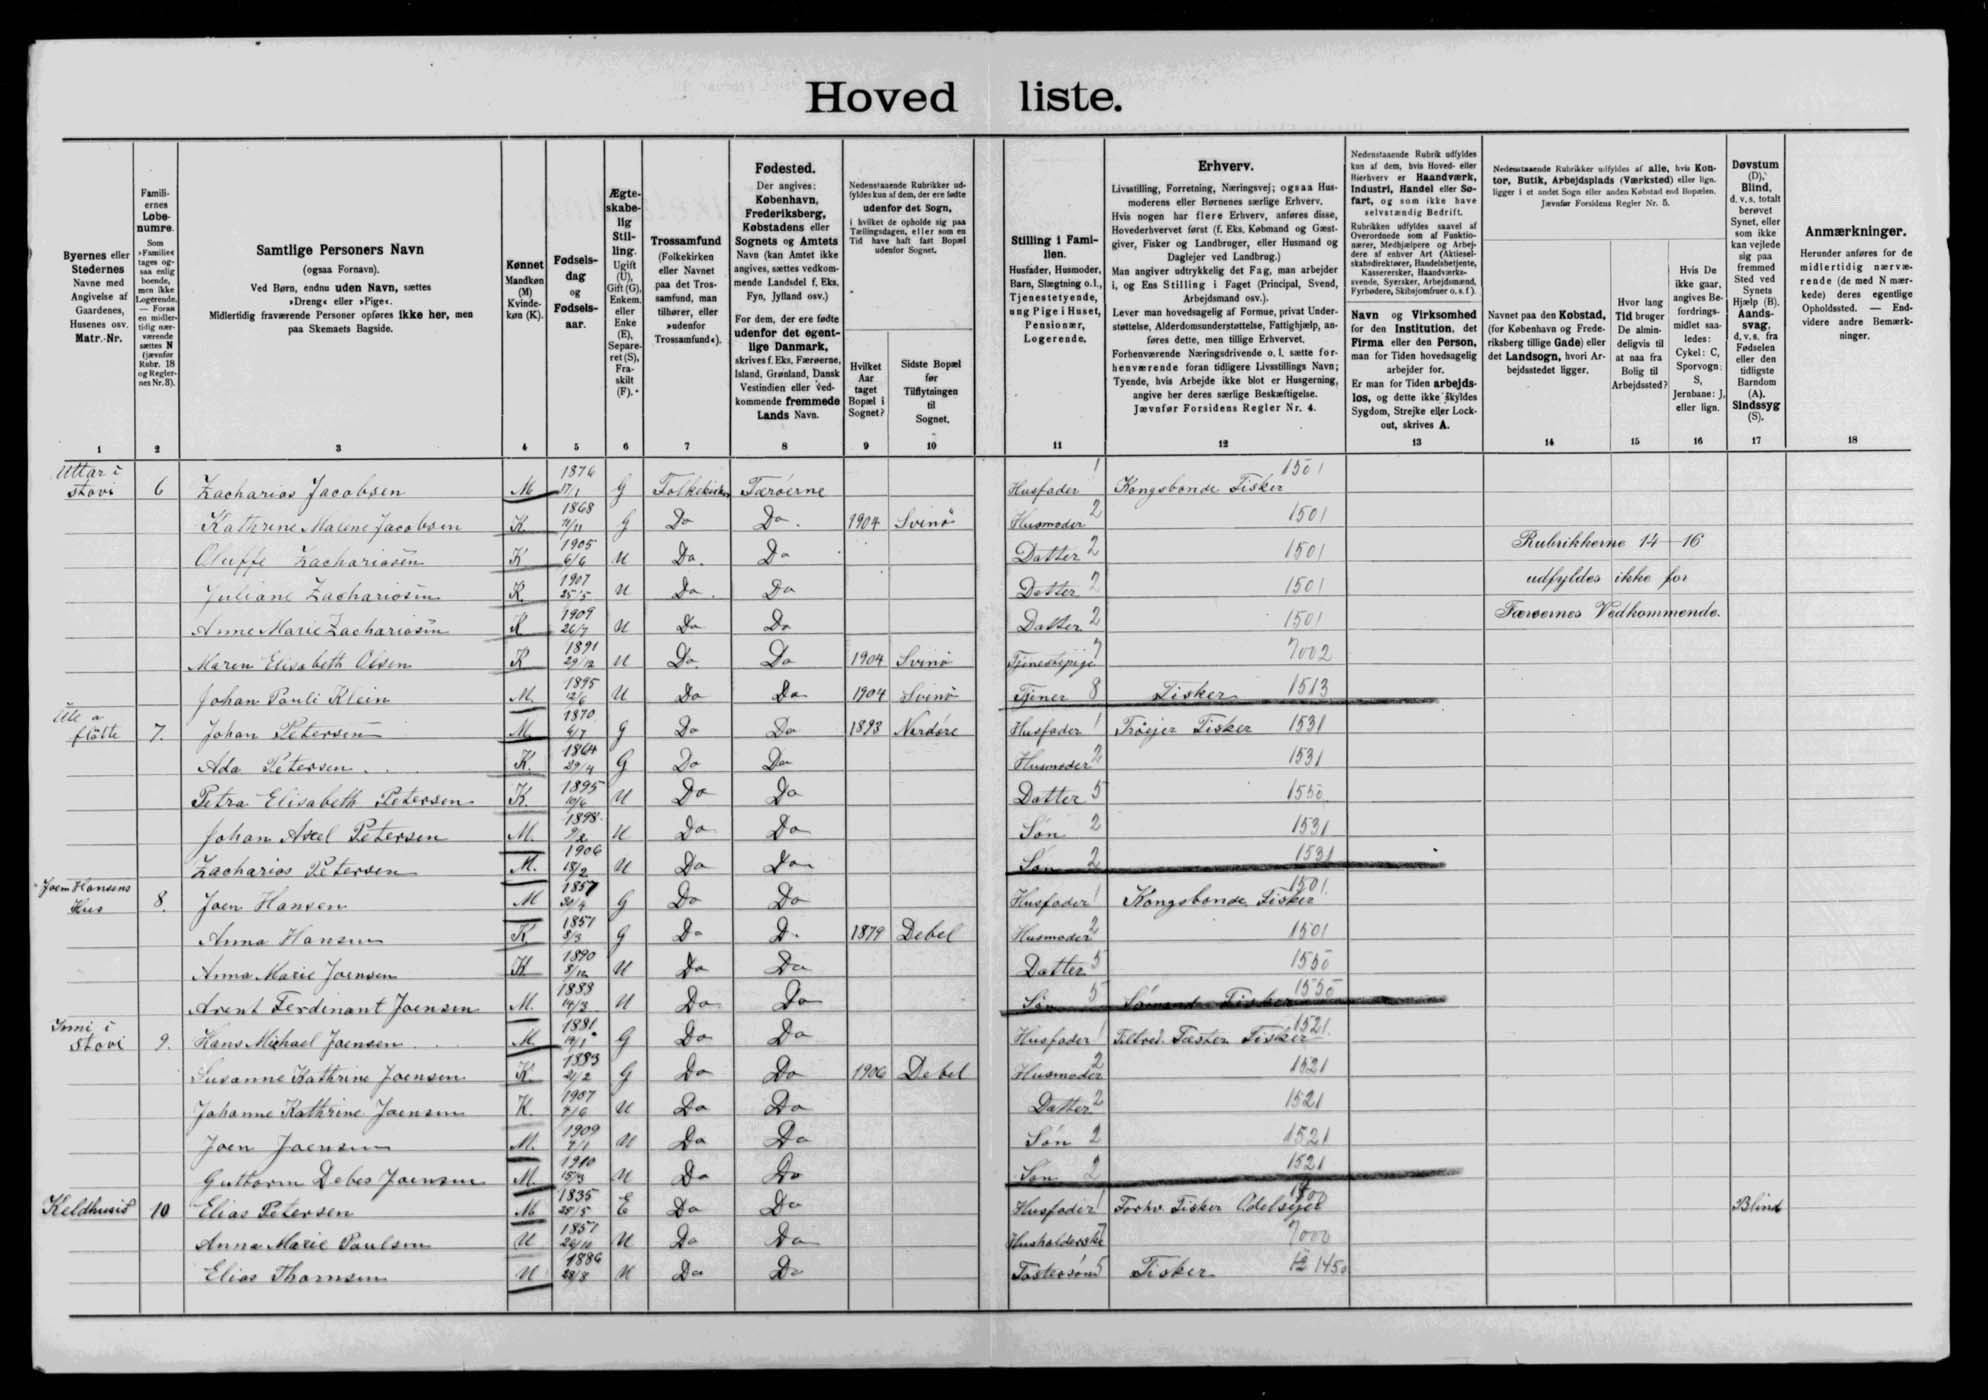 Hoved liste.
Byernes eller Stedernes Navne med Angivelse af Gaardenes, Husenes osv. Matr.-Nr.
Familiernes Løbenumre. Som »Familie« tages ogsaa enlig boende, men ikke Logerende. — Foran en midlertidig nærværende sættes N (jævnfør Rubr. 18 og Regler nes Nr. 3).
Samtlige Personers Navn (ogsaa Fornavn). Ved Børn, endnu uden Navn, sættes »Dreng« eller »Pige«. Midlertidig fraværende Personer opføres ikke her, men paa Skemaets Bagside.
Kønnet Mandkøn (M) Kvindekøn (K).
Fødselsdag og Fødselsaar.
Ægteskabelig Stilling. Ugift (U), Gift (G), Enkem. eller Enke (E), Separeret (S), Fraskilt (F).
Trossamfund (Folkekirken eller Navnet paa det Trossamfund, man tilhører, eller »udenfor Trossamfund«).
Fødested. Der angives: København, Frederiksberg, Købstadens eller Sognets og Amtets Navn (kan Amtet ikke angives, sættes vedkommende Landsdel f. Eks. Fyn, Jylland osv.) For dem, der ere fødte udenfor det egentlige Danmark, skrives f. Eks. Færøerne, Island, Grønland, Dansk Vestindien eller vedkommende fremmede Lands Navn.
Nedenstaaende Rubrikker udfyldes kun af dem, der ere fødte udenfor det Sogn, i hvilket de opholde sig paa Tællingsdagen, eller som en Tid have haft fast Bopæl udenfor Sognet.
Hvilket Aar taget Bopæl i Sognet?
Sidste Bopæl før Tilflytningen til Sognet.
Stilling i Familien. Husfader, Husmoder, Barn, Slægtning o.l., Tjenestetyende, ung Pige i Huset, Pensionær, Logerende.
Erhverv. Livsstilling, Forretning, Næringsvej; ogsaa Husmoderens eller Børnenes særlige Erhverv. Hvis nogen har flere Erhverv, anføres disse, Hovederhvervet først (f. Eks. Købmand og Gæstgiver, Fisker og Landbruger, eller Husmand og Daglejer ved Landbrug.) Man angiver udtrykkelig det Fag, man arbejder i, og Ens Stilling i Faget (Principal, Svend, Arbejdsmand osv.). Lever man hovedsagelig af Formue, privat Understøttelse, Alderdomsunderstøttelse, Fattighjælp, anføres dette, men tillige Erhvervet. Forhenværende Næringsdrivende o. l. sætte forhenværende foran tidligere Livsstillings Navn; Tyende, hvis Arbejde ikke blot er Husgerning, angive her deres særlige Beskæftigelse. Jævnfør Forsidens Regler Nr. 4.
Nedenstaaende Rubrik udfyldes kun af dem, hvis Hoved- eller Bierhverv er Haandværk, Industri, Handel eller Søfart, og som ikke have selvstændig Bedrift. Rubrikken udfyldes saavel af Overordnede som af Funktionærer, Medhjælpere og Arbejdere af enhver Art (Aktieselskabsdirektører, Handelsbetjente, Kasserersker, Haandværkssvende, Syersker, Arbejdsmænd, Fyrbødere, Skibsjomfruer o. s. f.).
Navn og Virksomhed for den Institution, det Firma eller den Person, man for Tiden hovedsagelig arbejder for. Er man for Tiden arbejdsløs, og dette ikke skyldes Sygdom, Strejke eller Lockout, skrives A.
Nedenstaaende Rubrikker udfyldes af alle, hvis Kontor, Butik, Arbejdsplads (Værksted) eller lign. ligger i et andet Sogn eller anden Købstad end Bopælen. Jævnfør Forsidens Regler Nr. 5.
Navnet paa den Købstad, (for København og Frederiksberg tillige Gade) eller det Landsogn, hvori Arbejdsstedet ligger.
Hvor lang Tid bruger De almindeligvis til at naa fra Bolig til Arbejdssted?
Hvis De ikke gaar, angives Befordringsmidlet saaledes: Cykel: C, Sporvogn: S, Jernbane: J, eller lign.
Døvstum (D), Blind, d. v. s. totalt berøvet Synet, eller som ikke kan vejlede sig paa fremmed Sted ved Synets Hjælp (B). Aandssvag, d. v. s. fra Fødselen eller den tidligste Barndom (A). Sindssyg (S).
Anmærkninger. Herunder anføres for de midlertidig nærværende (de med N mærkede) deres egentlige Opholdssted. — Endvidere andre Bemærkninger.
1 2 3 4 5 6 7 8 9 10 11 12 13 14 15 16 17 18
Uttar i stovi 6 Zacharias Jacobsen M 1876 17/1 G Folkekirken Færøerne Husfader 1 Kongsbonde Fisker 1501
Kathrine Malene Jacobsen K 1868 G Do Do. 1904 Svinø Husmoder 2 1501
Oluffe Zachariasen K 1905 6/6 U Do. Do Datter 2 1501 Rubrikkerne 14–16
Juliane Zachariasen K. 1907 25/5 U Do. Do Datter 2 1501 udfyldes ikke for
Anne Marie Zachariasen K 1909 26/7 U Do Do Datter 2 1501 Færøernes Vedkommende.
Maren Elisabeth Olsen K 1891 29/12 U Do. Do 1904 Svinø Tjenestepige 7 7002
Johan Pauli Klein M 1895 12/6 U Do Do 1904 Svinø Tjener 8 Fisker 1513
Ute a fløtte 7. Johan Petersen M 1870 6/7 G Do Do 1893 Nordøre Husfader 1 Trøejer Fisker 1531
Ada Petersen K. 1864 29/4 G Do Do Husmoder 2 1531
Petra Elisabeth Petersen K. 1895 10/6 U Do Do Datter 5 1550
Johan Axel Petersen M. 1898 9/2 U Do Do Søn 2 1531
Zacharias Petersen M. 1906 18/2 U Do Do Søn 2 1531
Joen Hansens Hus 8. Joen Hansen M 1857 G Do Do Husfader 1 Kongsbonde Fisker 1501.
Anna Hansen K 1851 8/3 G Do D. 1879 Debel Husmoder 2 1501
Anna Marie Joensen K 1890 8/12 U Do Do Datter 5 1550
Arent Ferdinant Joensen M. 1888 14/3 U Do Do Søn 5 Sømand Fisker 1550
Inni i Stovi 9. Hans Michael Joensen M 1881 19/1 G Do Do Husfader 1 Tiltred. Fæster Fisker 1521.
Susanne Kathrine Joensen K 1883 21/2 G Do Do 1906 Debel Husmoder 2 1521
Johanne Kathrine Joensen K. 1907 7/6 U Do Do Datter 2 1521
Joen Joensen M. 1909 7/1 U Do Do Søn 2 1521
Guttorm Debes Joensen M. 1910 15/3 U Do Do Søn 2 1521
Keldhusid 10 Elias Petersen M 1835 25/5 E Do Do Husfader 1 Forhv. Fisker Odelsejer Blind
Anna Marie Paulsen U 1851 U Do Do Husholderske 7 7000
Elias Thomsen U 1886 28/8 U Do Do Fostersøn 5 Fisker 1450